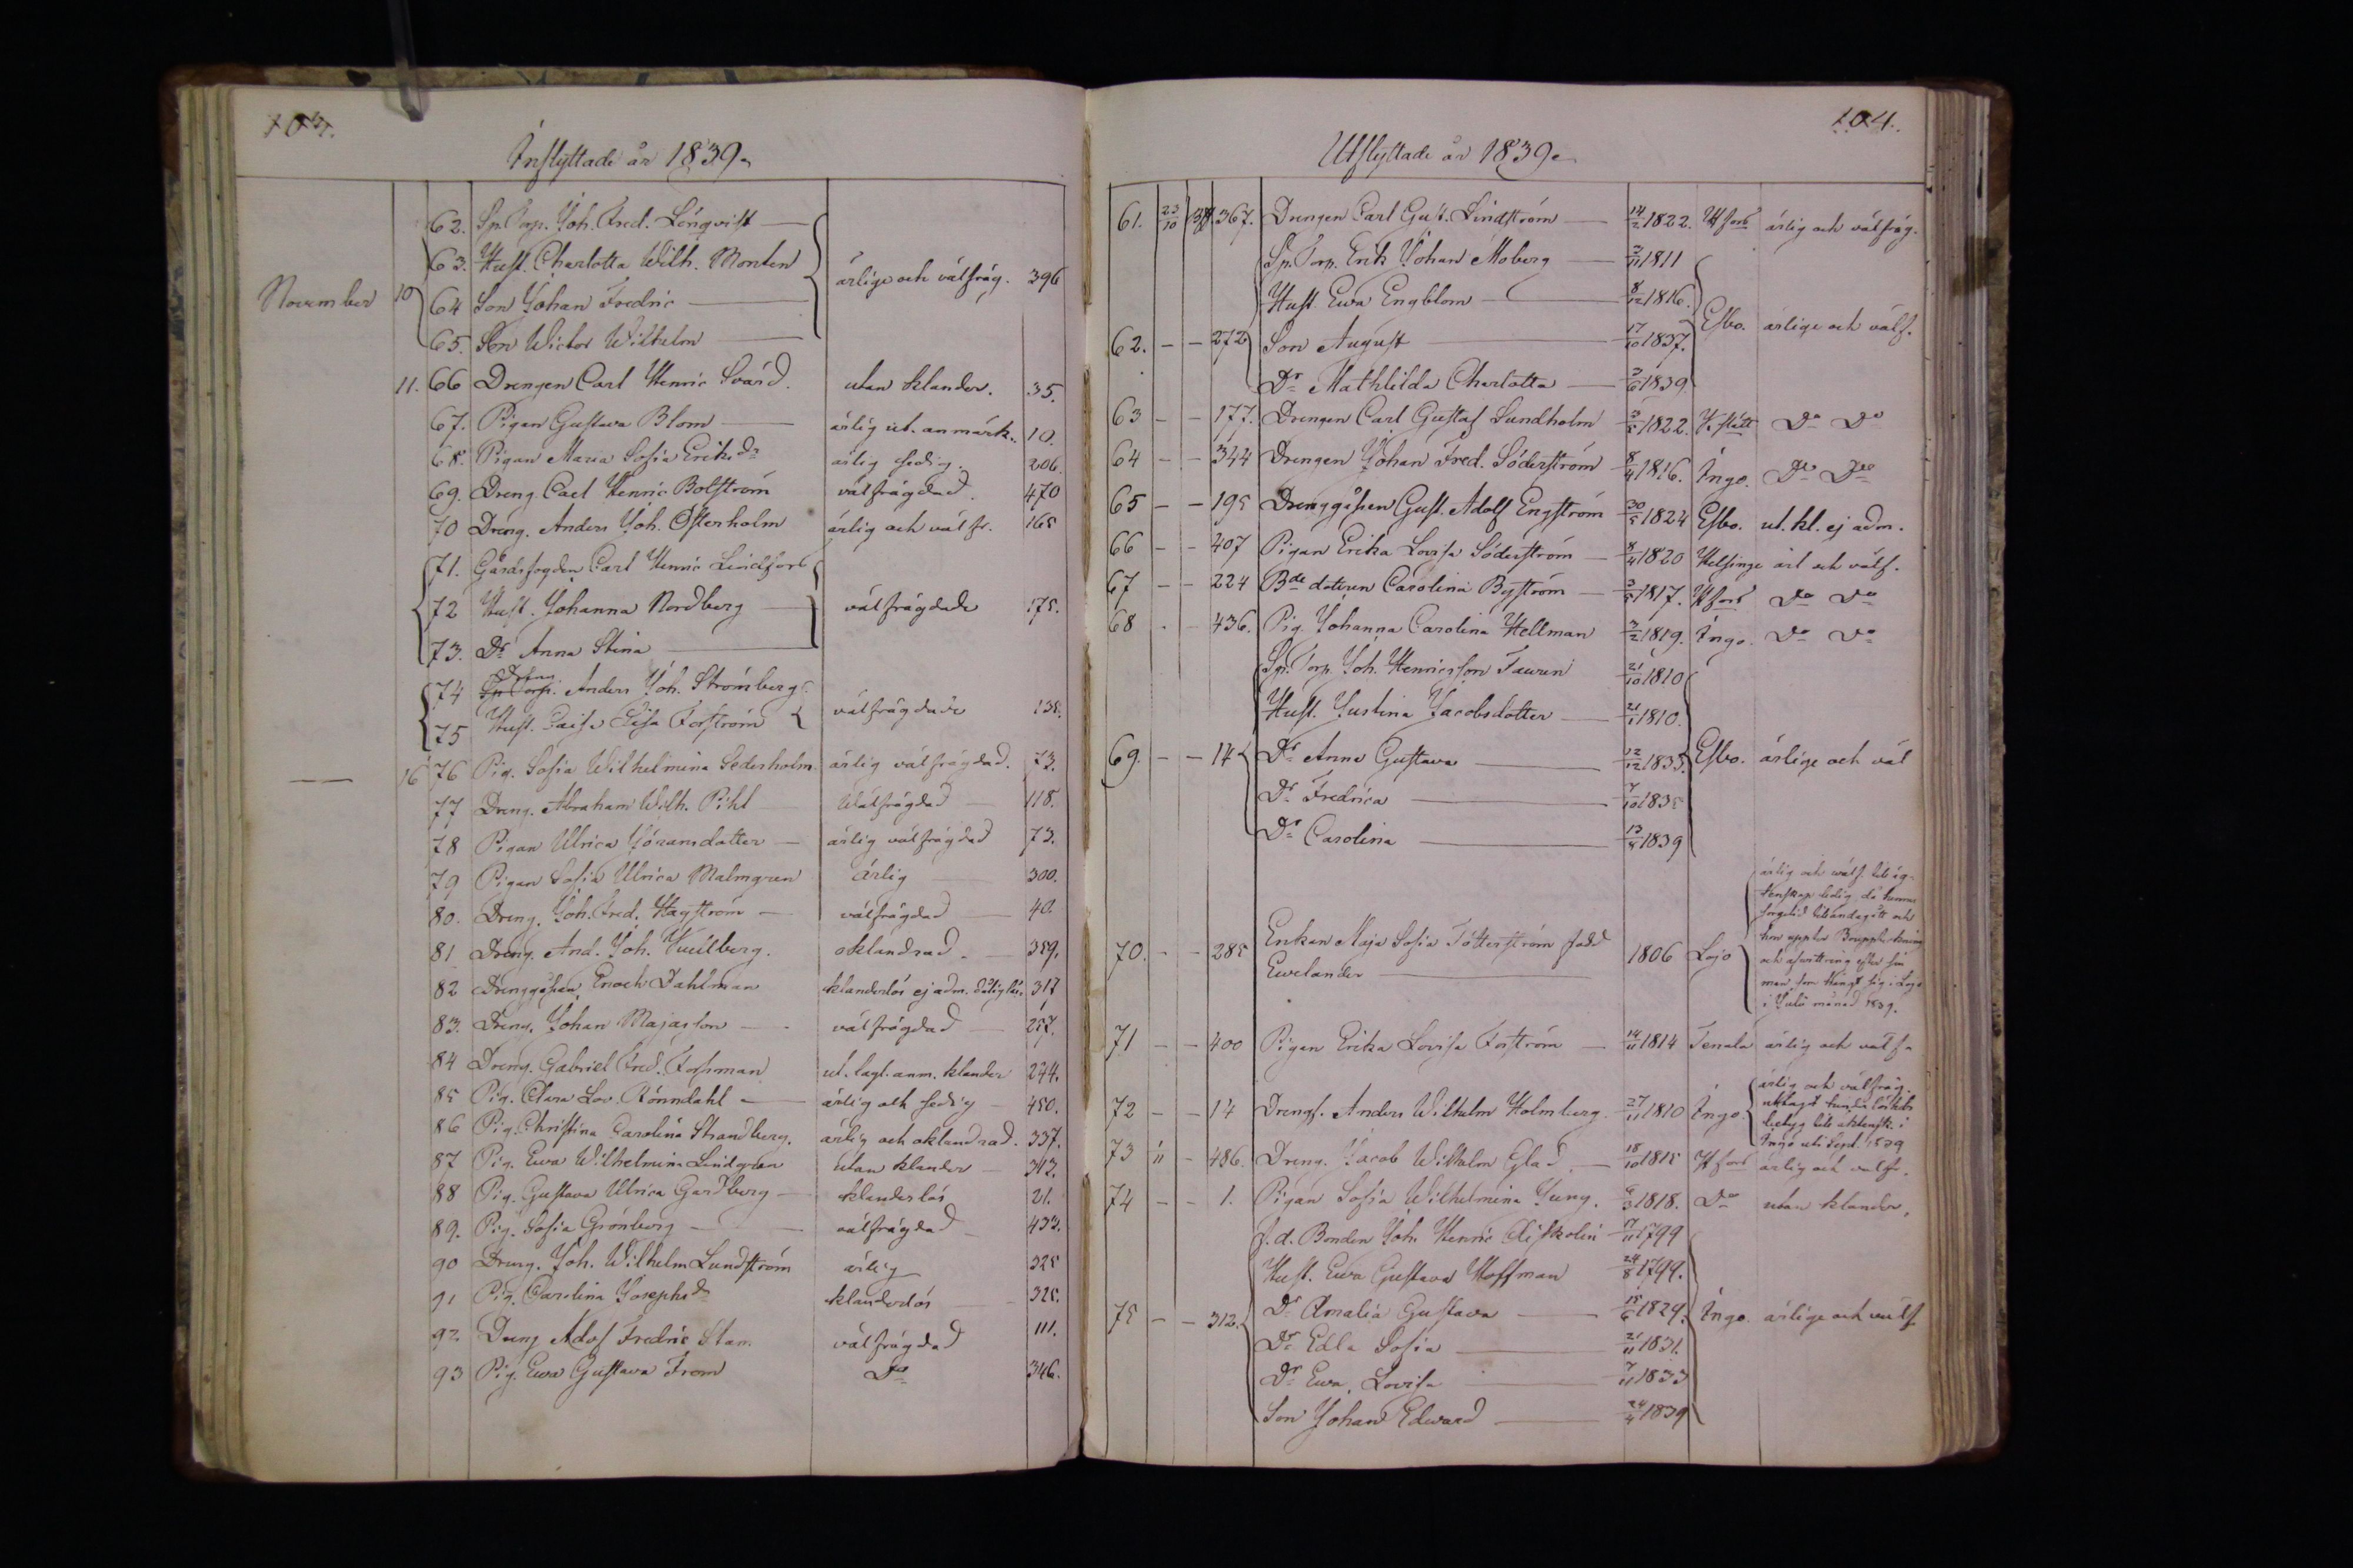 Inflyttade år 1839.
62. Sp. Torp. Joh. Fred. Lönqvist
63. Hust. Charlotta Wilh. Montin
ärlige och välfräg. 396
November 10 64 Son Johan Fredric
65. Son Wictor Wilhelm
11. 66 Drengen Carl Henric Svärd. utan klander. 35.
67. Pigan Gustava Blom ärlig ut. anmärk. 10.
68. Pigan Maria Sofia Eriksdr ärlig sedig. 206.
69. Dreng. Carl Henric Bolström välfrägdad. 470
70 Dreng. Anders Joh. Österholm ärlig och välfr. 165
71. Gårdsfogden Carl Henric Lindfors
72 Hust. Johanna Nordberg välfrägdade 175.
73. Dr Anna Stina
74 Sp. Torp. Anders Joh. Strömberg
välfrägdade 138.
75 Hust. Caisa Lisa Forström
16 76 Pig. Sofia Wilhelmina Sederholm ärlig välfrägdad. 73.
77 Dreng. Abraham Wilh. Pihl Wälfrägdad 118.
78 Pigan Ulrica Göransdotter ärlig välfrägdad 73.
79 Pigan Sofia Ulrica Malmgren Ärlig 300.
80. Dreng. Joh. Fred. Hagström välfrägdad 40.
81 Dreng. And. Joh. oklandrad. 359.
82 Drenggåssen Enoch Dahlman klanderlös ej adm. 317
83. Dreng. Johan Majasson välfrägdad 257.
84 Dreng. Gabriel Fred. Forsman ut. lagl. anm. klander 244.
85 Pig. Clara Lov. Rönndahl ärlig och sedig 450.
86 Pig. Christina Carolina Strandberg. ärlig och oklandrad. 337.
87 Pig. Ewa Wilhelmina Lindgren utan klander 313.
88 Pig. Gustava Ulrica Gardberg klanderlös 21.
89. Pig. Sofia Grönberg välfrägdad 433.
90 Dreng. Joh. Wilhelm Lundström ärlig 325
91 Pig. Carolina Josephsdr klanderlös 325.
92 Dreng Adof Fredric Stam. välfrägdad 111.
93 Pig. Ewa Gustava From Do 346.
104.
Utflyttade år 1839
61. 23/10 367. Drengen Carl Gust. Lindström 14/2 1822. Hfors ärlig och välfräg.
Sp. Torp. Erik Johan Moberg 3/11 1811
Hust Ewa Engblom 8/12 1816.
Esbo. ärlige och välf.
62. - - 272 Son August 17/10 1837.
Dr Mathlilda Charlotta 3/6 1839
63 - - 177. Drengen Carl Gustaf Lundholm 3/5 1822. K. slätt Do Do
64 - - 344 Drengen Johan Fred. Söderström 8/4 1816. Ingo. Do Do
65 - - 195 Drenggåssen Gust. Adolf Engström 30/5 1824 Esbo. ut. kl. ej adm.
66 - - 407 Pigan Erika Lovisa Söderström 8/4 1820 Helsinge ärl och välf.
67 - - 224 Bde dotren Carolina Byström 3/5 1817. Hfors Do Do
68 - - 436. Pig. Johanna Carolina Hellman 3/2 1819. Ingo. Do Do
Sp. Torp. Joh. Henricsson Tauren 21/10 1810
Hust. Justina Jacobsdotter 21/1 1810.
69. - - 14 Dr Anna Gustava 12/12 1833. Esbo. ärlige och väl
Dr Fredrica 7/10 1835
Dr Carolina 13/4 1839
ärlig och wälf. till äg-
tenskap ledig då hennes
70. - - 285 Enkan Maja Sofia Tötterström född 1806 Lojo
Ewelander
och afwittring efter sin
man som hängt sig i Lojo
i Julii månad 1839.
71 - - 400 Pigan Erika Lovisa Forström 14/11 1814 Tenala ärlig och välf
ärlig och välfräg.
72 - - 14 Drengs. Anders Wilhelm Holmberg. 27/11 1810 Ingo.
betyg till äktensk. i
Ingo uti Sept. 1839
73 11 - 486. Dreng. Jacob Wilhelm Glad. 18/10 1815 Hfors ärlig och välfr.
74 - - 1. Pigan Sofia Wilhelmina Jung. 6/3 1818. Do utan klander.
f. d. Bonden Joh. Henric 17/11 1799
Hust. Ewa Gustava Hoffman 24/8 1799.
75 - - 312. Dr Amalia Gustava 15/6 1829. Ingo. ärlige och välf
Dr Edla Sofia 21/11 1831.
Dr Ewa Lovisa 7/11 1833
Son Johan Edward 24/4 1839